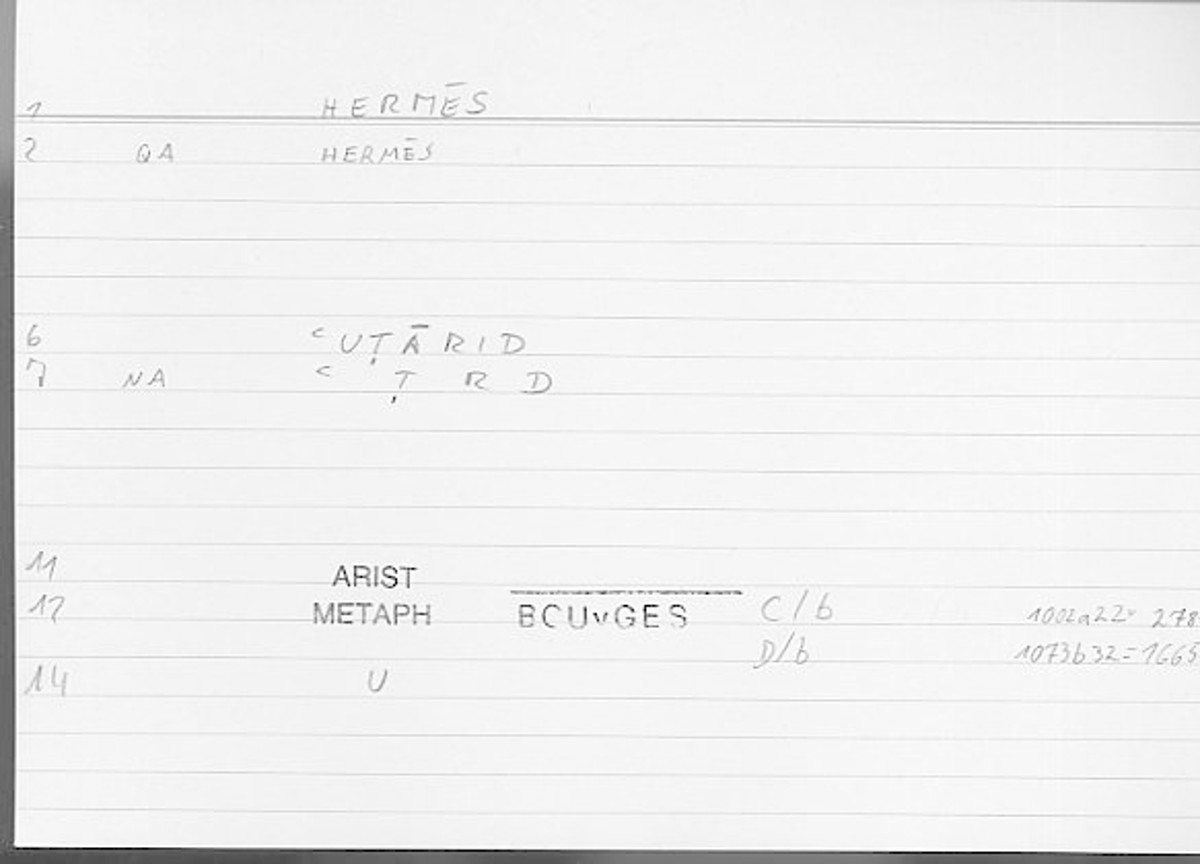 1 HERMĒS
2 QA HERMĒS
6 ʿUṬĀRID
7 NA ʿ Ṭ R D
11 ARIST
12 METAPH BOUYGES C/b 1002a22 278
D/b 1073b32=1665
14 U